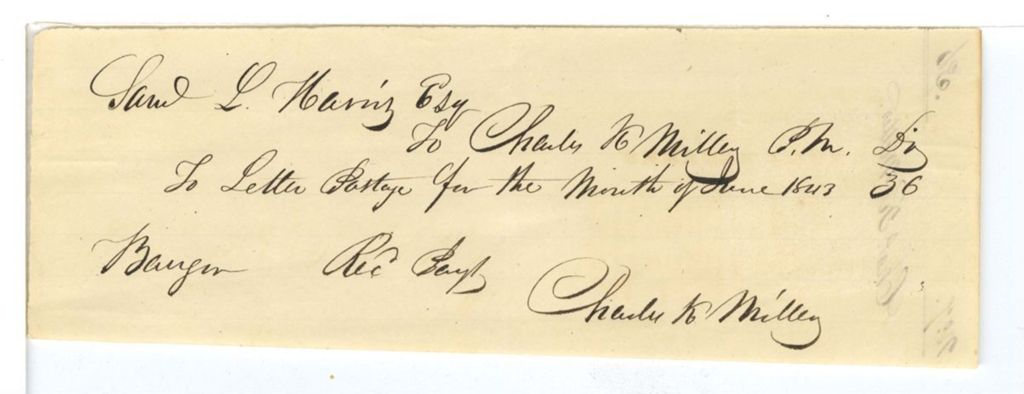 Saml L. Harris Esq
To Charles K Miller P.M. Dr
To Letter Postage for the Month of June 1843 36
Bangor Recd Payt
Charles K Miller